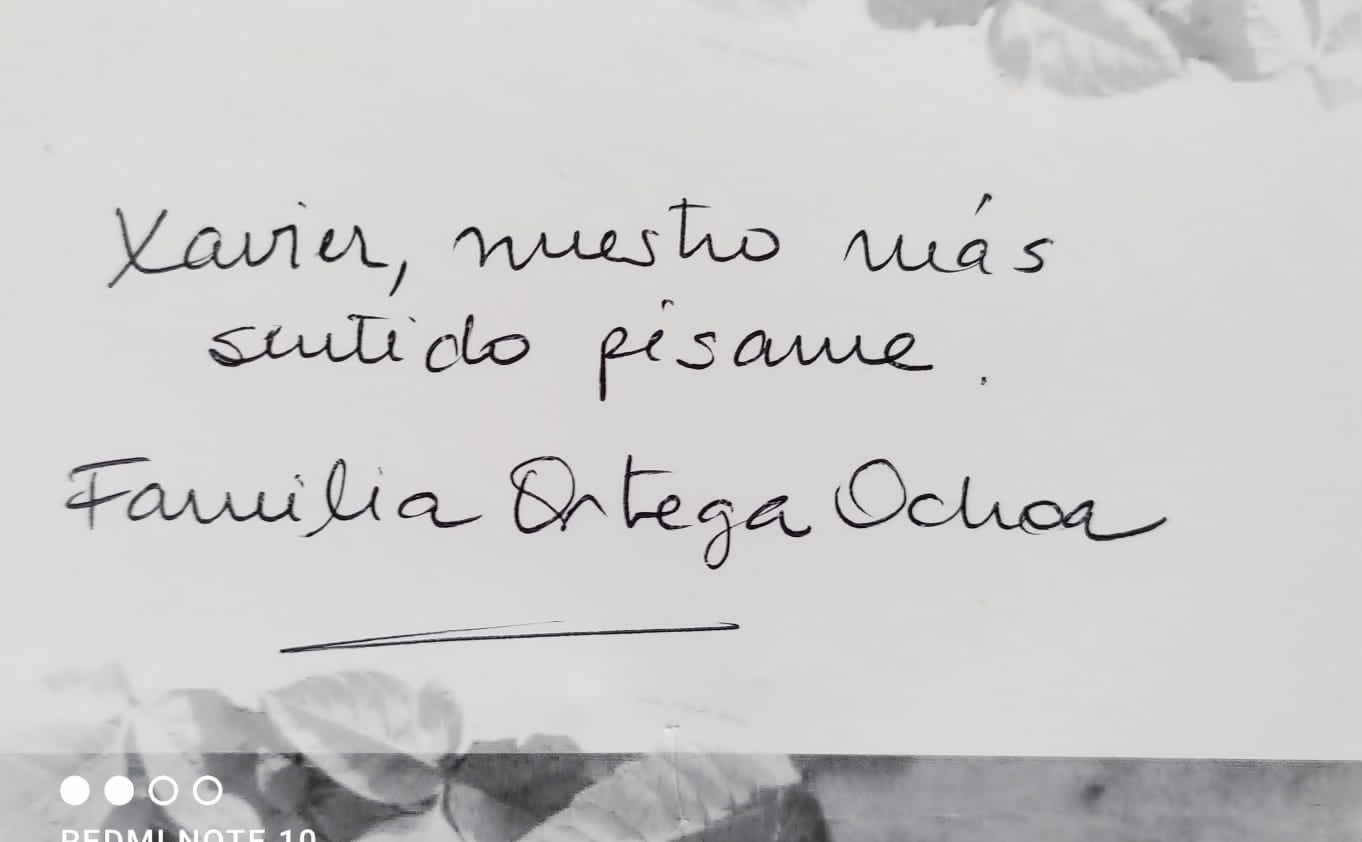 Xavier, nuestro más
sentido pésame.
Familia Ortega Ochoa
REDMI NOTE 10